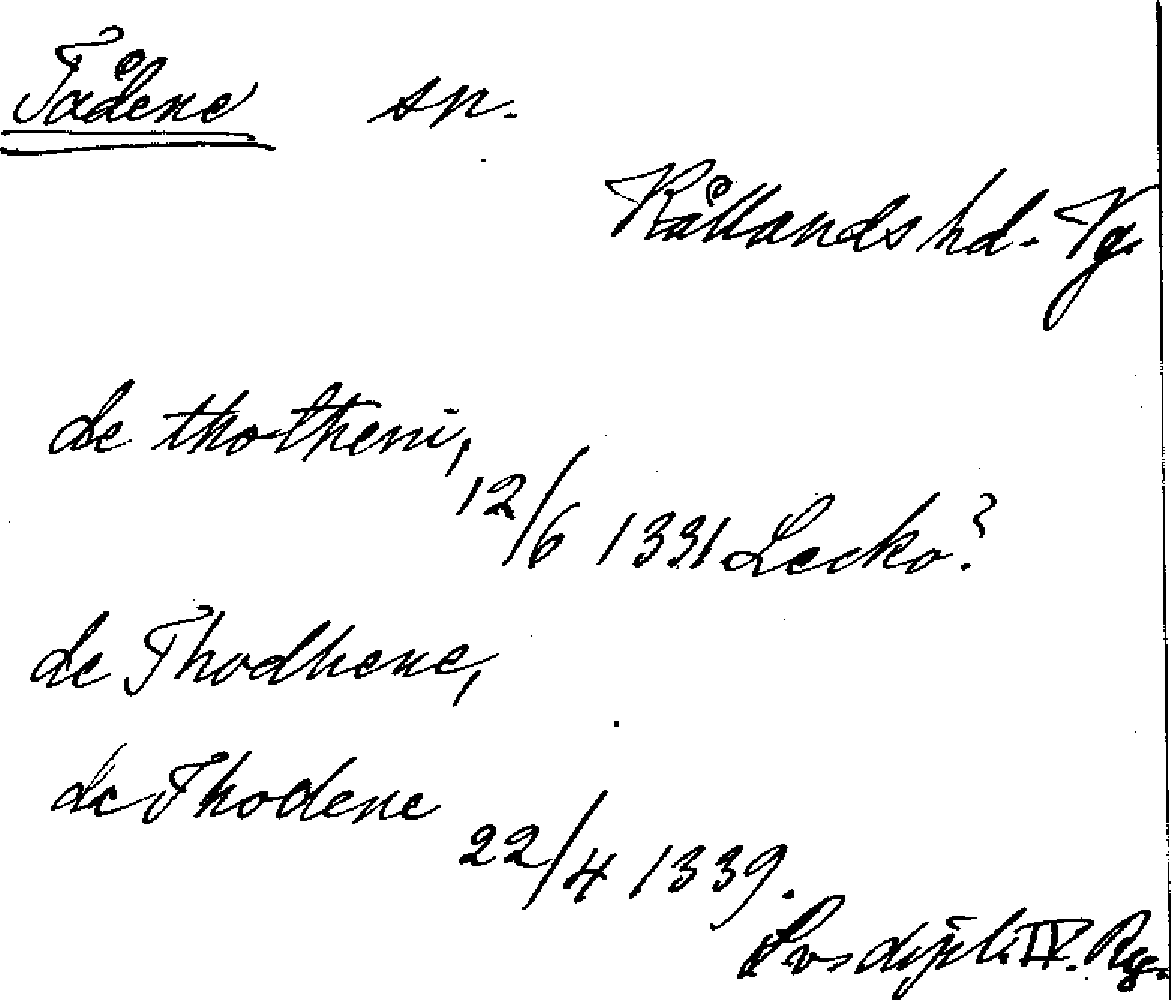 Tådene sn.
Kållands hd. Vg.
de thotheni,
12/6 1331 Lecko?
de Thodhene,
de Thodene
22/4 1339.
Sv. dipl. IV. Reg.